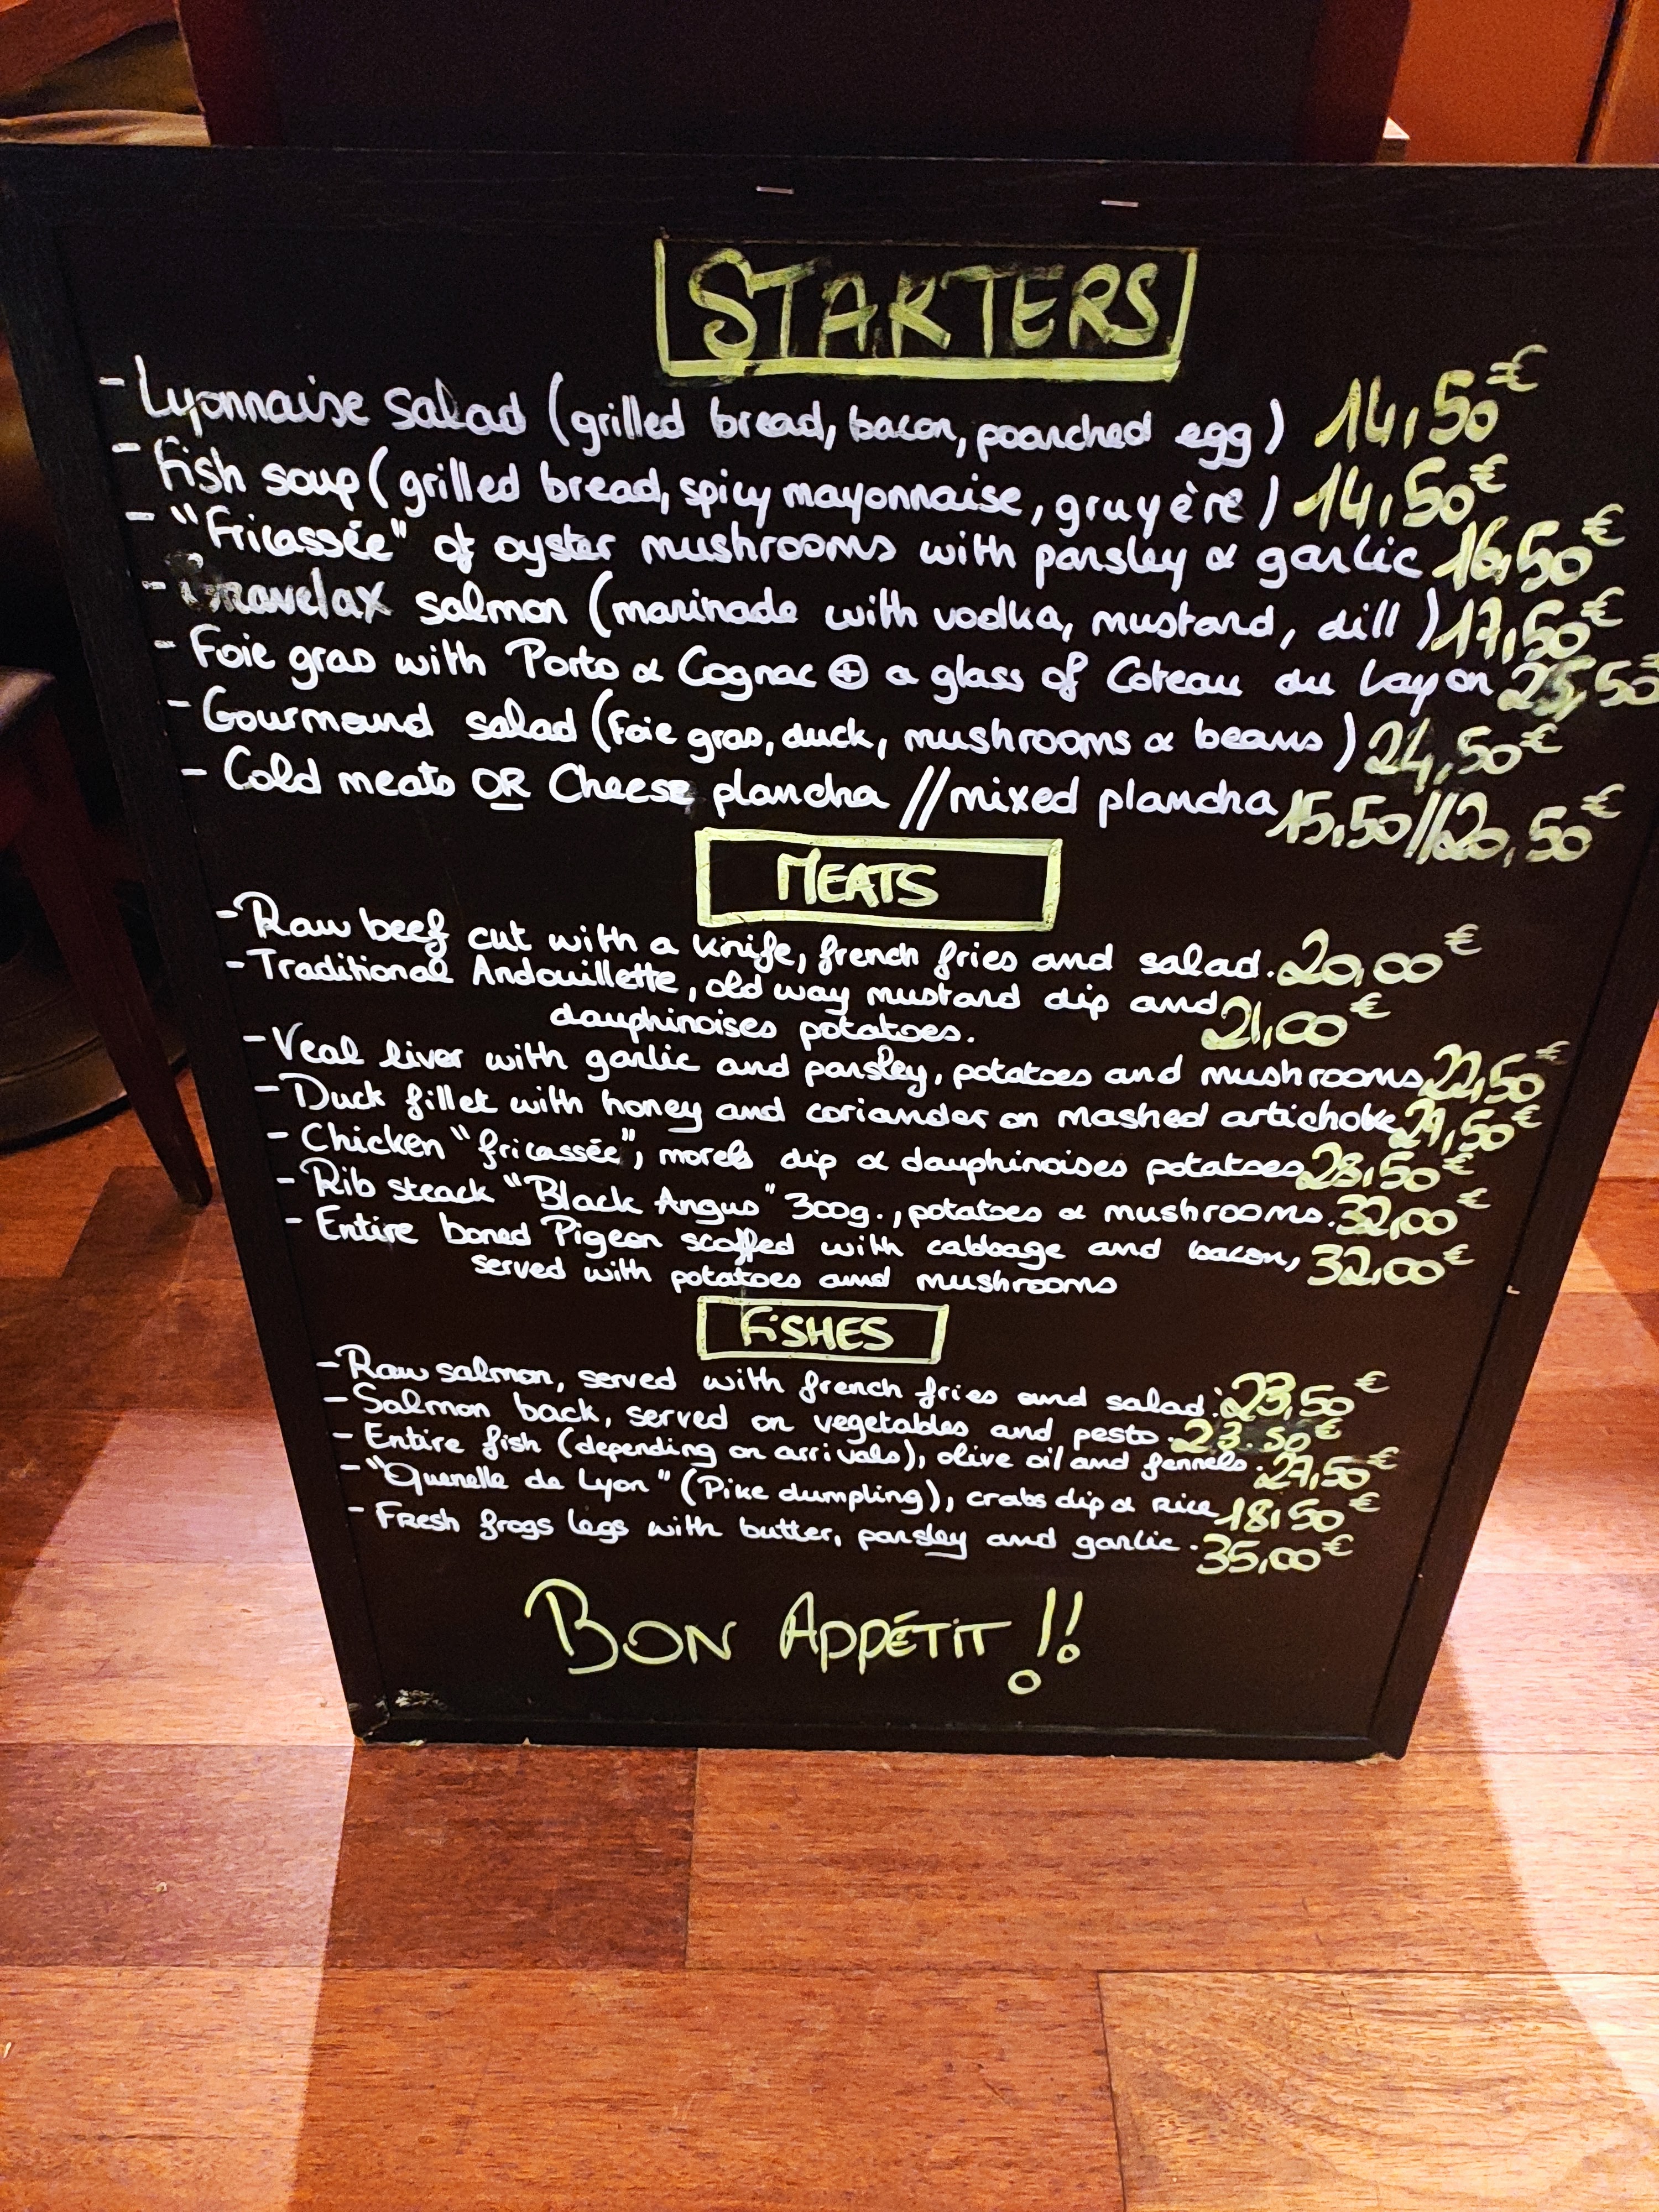 STARTERS
- Lyonnaise salad (grilled bread, bacon, poarched egg) 14,50€
- Fish soup (grilled bread, spicy mayonnaise, gruyère) 14,50€
- "Fricassée" of oyster mushrooms with parsley & garlic 16,50€
- Gravelax salmon (marinade with vodka, mustard, dill) 17,50€
- Foie gras with Porto & Cognac + a glass of Coteau du Layon 25,50€
- Gourmand salad (foie gras, duck, mushrooms & beans) 24,50€
- Cold meats OR Cheese plancha // mixed plancha 15,50//20,50€
MEATS
- Raw beef cut with a knife, french fries and salad. 20,00€
- Traditional Andouillette, old way mustard dip and
dauphinoises potatoes. 21,00€
- Veal liver with garlic and parsley, potatoes and mushrooms 22,50€
- Duck fillet with honey and coriander on mashed artichoke 29,50€
- Chicken "fricassée", morels dip & dauphinoises potatoes 28,50€
- Rib steack "Black Angus" 300g., potatoes & mushrooms. 32,00€
- Entire boned Pigeon scoffed with cabbage and bacon, 32,00€
served with potatoes and mushrooms
FiSHES
- Raw salmon, served with french fries and salad. 23,50€
- Salmon back, served on vegetables and pesto. 23.50€
- Entire fish (depending on arrivals), olive oil and fennels. 27,50€
- "Quenelle de Lyon" (Pike dumpling), crabs dip & Rice 18,50€
- Fresh frogs legs with butter, parsley and garlic. 35,00€
BON APPÉTIT !!